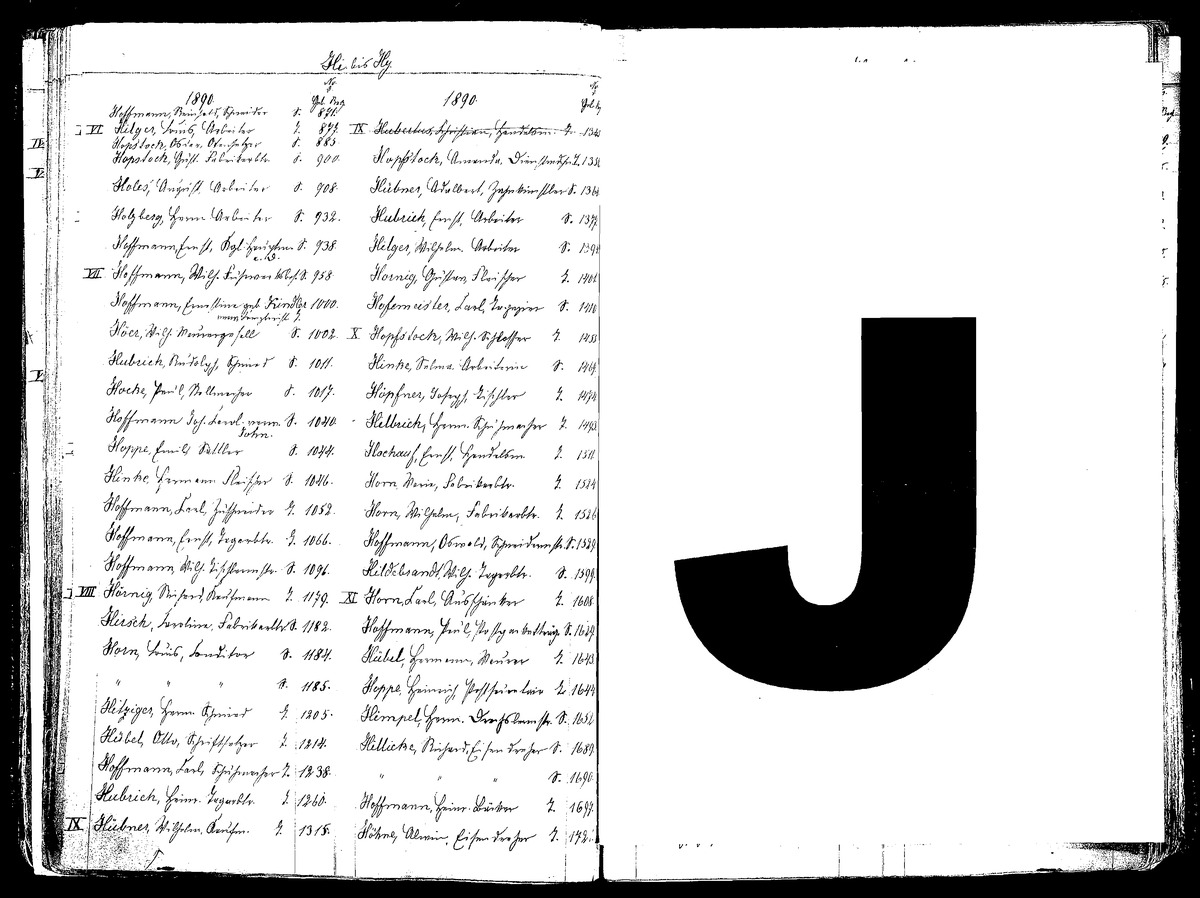 Hi bis Hy.
No
Geb. Reg.
1890.
Hoffmann, Reinhold, Schneider S. 871.
VI Hilger, Louis, Arbeiter T. 877.
Hopstock, Oskar, Ofensetzer S. 885.
Hopstock, Gust. Fabrikarbtr. S. 900.
Holes, August, Arbeiter S. 908.
Holzberg, Herm. Arbeiter S. 932.
Hoffmann, Ernst, Kgl. Hauptm. S. 938.
a. D.
VII Hoffmann, Wilh. S. 958
Hoffmann, Ernestine geb. Kindler 1000.
T.
Höer, Wilh. Maurergesell S. 1002.
Hubrich, Rudolph, Schmied S. 1011.
Hocke, Paul, Stellmacher S. 1017.
Hoffmann Joh. Karol. verw. S. 1040.
John.
Hoppe, Emil Sattler S. 1044.
Hinke, Hermann Fleischer S. 1046.
Hoffmann, Karl, Zuschneider T. 1052.
Hoffmann, Ernst, Tagarbtr. T. 1066.
Hoffmann, Wilh. Tischlermstr. S. 1096.
VIII Hörnig, Richard, Kaufmann T. 1179.
Hirsch, Karoline, Fabrikarbtr S. 1182.
Horn, Louis, Konditor S. 1184.
" " " S. 1185.
Hitziger, Herm. Schmied T. 1205.
Hübel, Otto, Schriftsetzer T. 1214.
Hoffmann, Karl, Schuhmacher T. 1238.
Hubrich, Heinr. Tagarbtr. T. 1260.
IX Hübner, Wilhelm, Kaufm. T. 1315.
No
Geb.
1890.
IX Hubertus, Christian, Handelsm. T. 134
Hopfstock, Amanda. T. 135
Hübner, Adalbert, Zahnkünstler S. 136
Hubrich, Ernst, Arbeiter S. 1377
Hilger, Wilhelm Arbeiter S. 139
Hornig, Gustav, Fleischer T. 1401
Hofemeister, Karl, Tapezier S. 1416
X Hopfstock, Wilh. Schlosser T. 1455
Hinke, Selma Arbeiterin S. 1461
Höpfner, Joseph, Tischler T. 1474
Helbrich, Herm. Schuhmacher T. 1493
Hochauf, Ernst, Handelsm. T. 1511
Horn, Marie, Fabrikarbtr. T. 1524
Horn, Wilhelm, Fabrikarbtr. T. 1526
Hoffmann, Oswald, Schneidermstr. S. 1529
Hildebrandt, Wilh. Tagarbtr. S. 1599
XI Horn, Karl, Ausschänker T. 1608
Hoffmann, Paul, S. 1629
Hübel, Hermann, Maurer T. 1643
Hoppe, Heinrich, Postsecretair T. 1644
Himpel, Herm. Drechslermstr. S. 1652
Hillicke, Richard, Eisendreher S. 1689
" " " S. 1690.
Hoffmann, Heinr. Bäcker T. 1697
Höhne, Alwin, Eisendreher T. 172
J